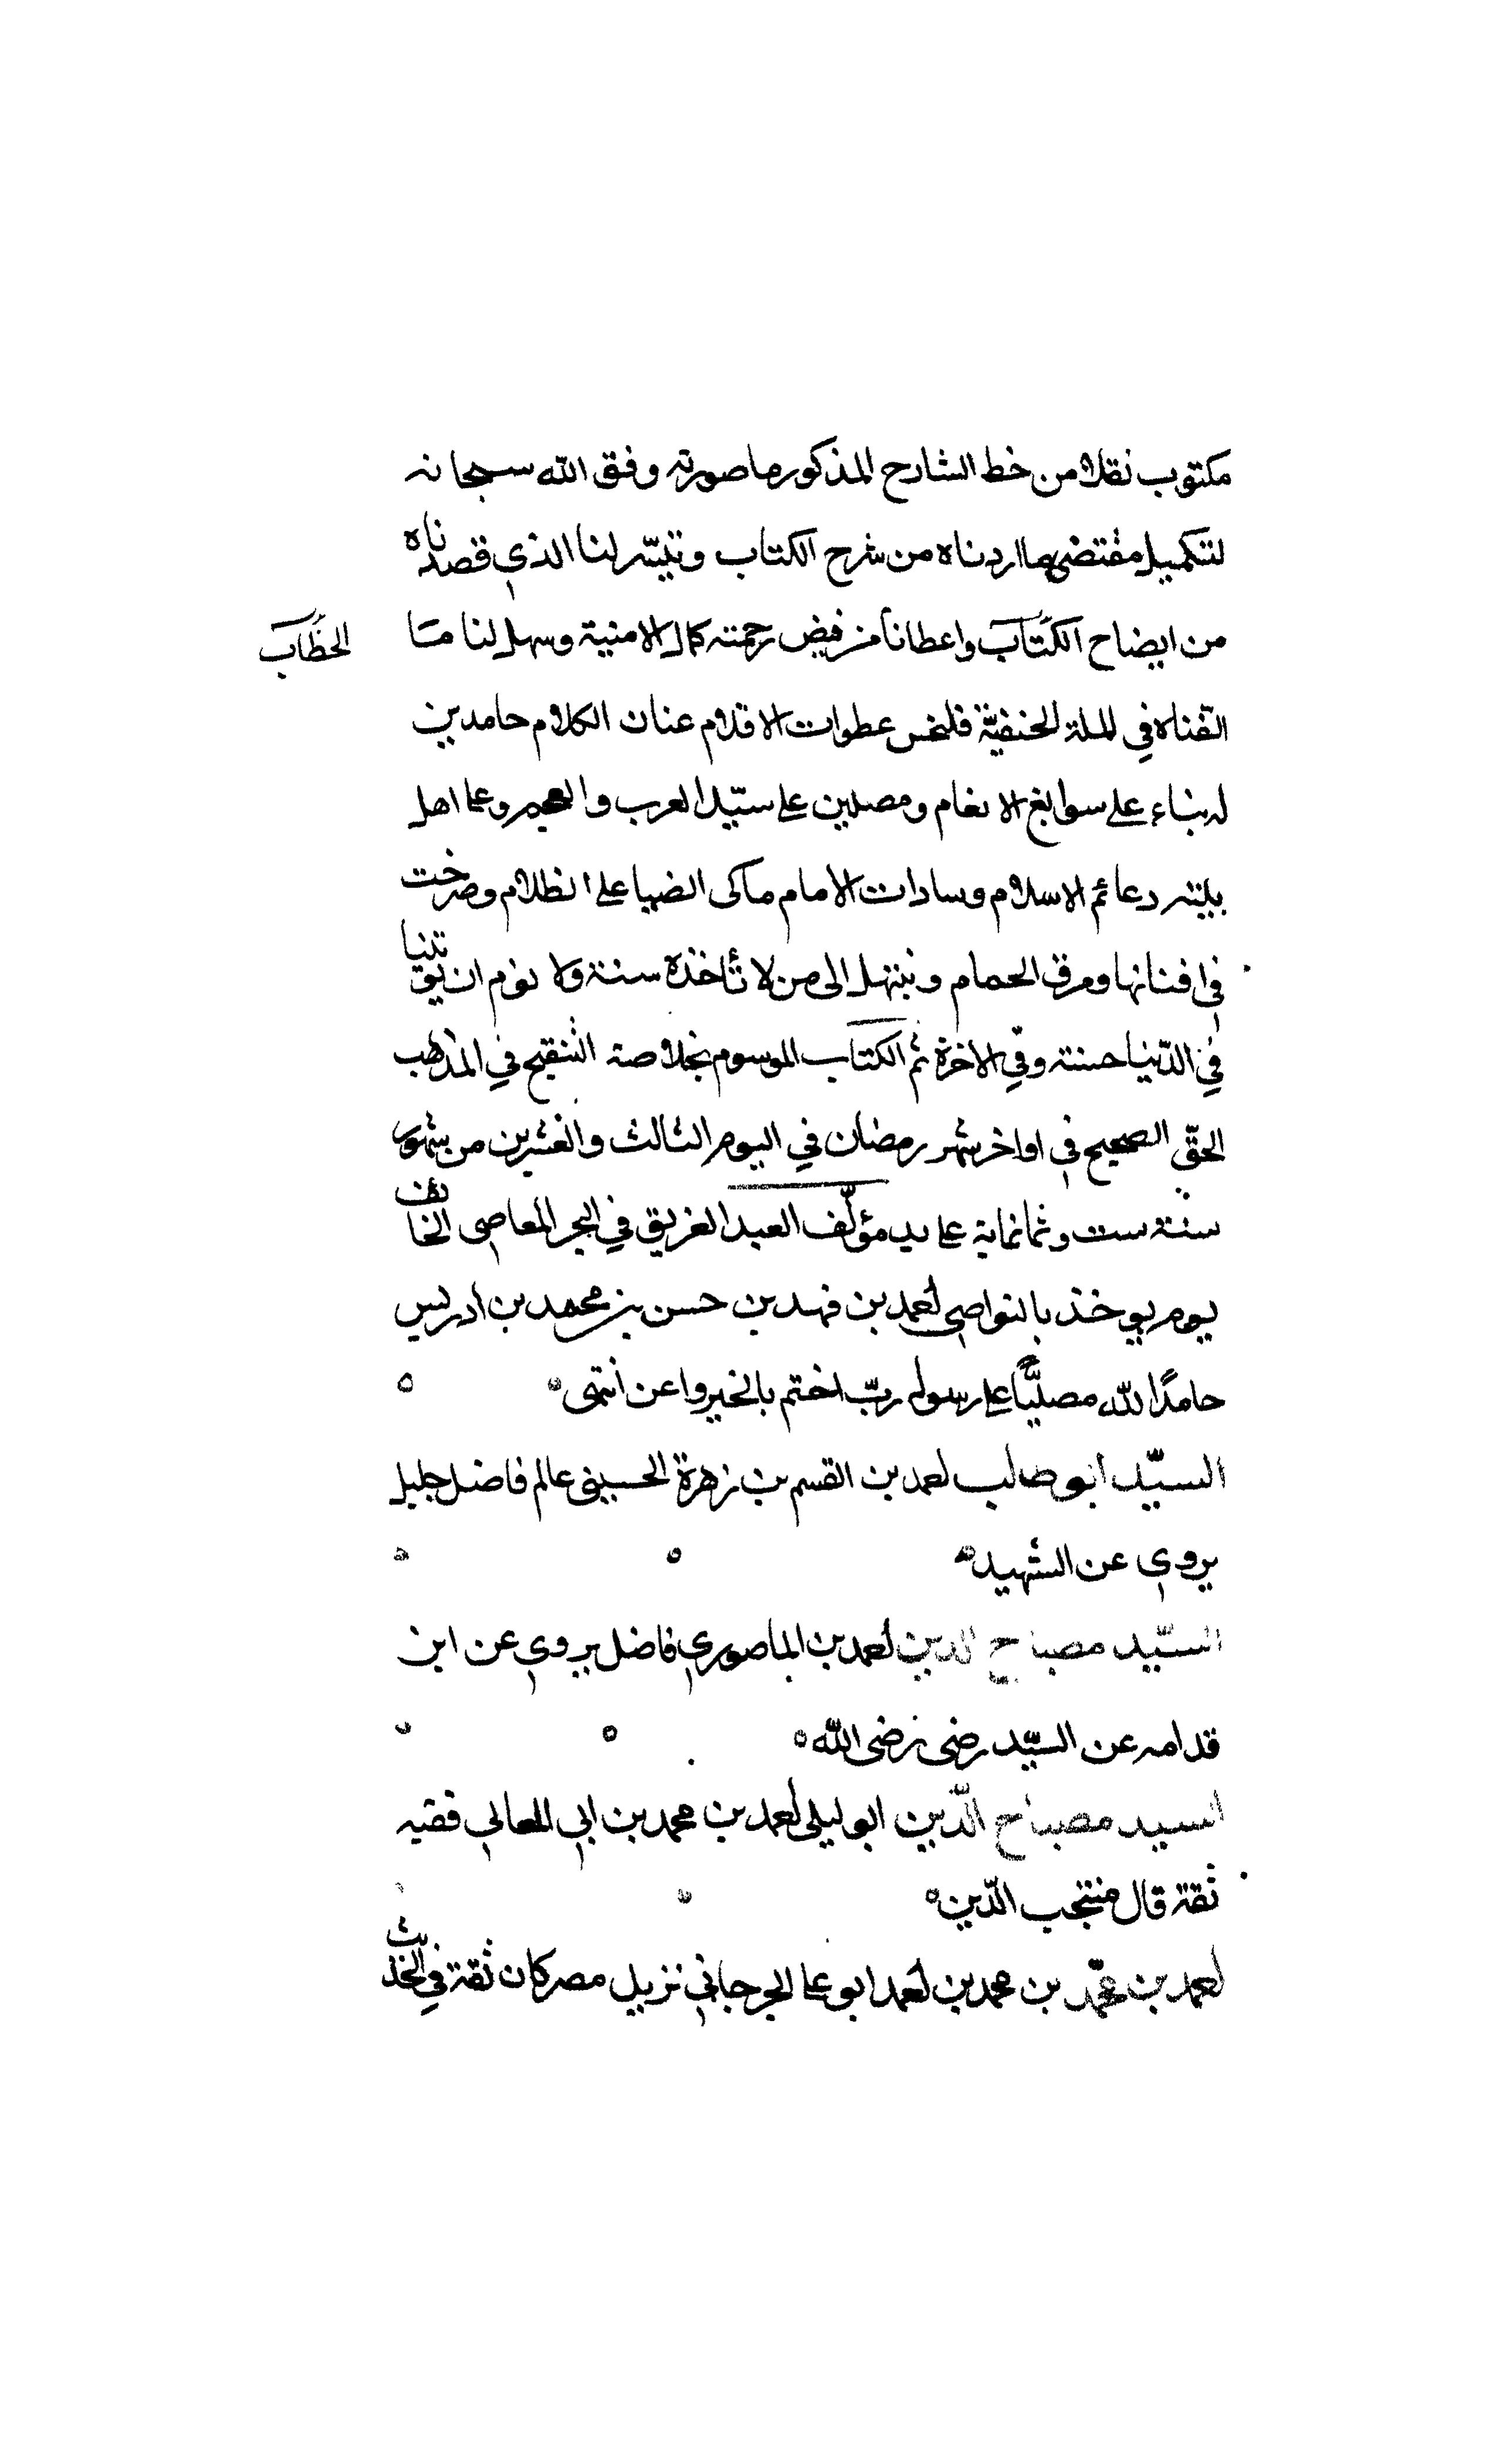 مكتوب نقلا من خط الشارح المذكور ما صورته وفق الله سبحانه
لتكميل مقتضى ما اردناه من شرح الكتاب وتيسّر لنا الذي قصدناه
من ايضاح الكتاب واعطانا من فيض رحمته كمال الامنية وسهل لنا متا
الخطاب
القناه في الملة الحنفيّة فلنحبس عطوات الاقلام عنان الكلام حامدين
له بناء على سوابغ الانعام ومصلين على سيّد العرب والعجم وعلى اهل
بيته دعائم الاسلام وسادات الامام ما كى الضيا على الظلام وصرخت
في افنانها ورق الحمام ونبتهل الى من لا تأخذه سنة ولا نوم ان يؤتينا
في الدّنيا حسنة وفي الاخرة ثم الكتاب الموسوم بخلاصة التنقيح في المذهب
الحقّ الصحيح في اواخر شهر رمضان في اليوم الثالث والعشرين من شهور
سنة ست وثمانماية على يد مؤلّف العبد الغريق في البحر المعاصي الخائف
يوم يوخذ بالنواصي احمد بن فهد بن حسن بن محمد بن ادريس
حامدًا لله مصليًّا على رسوله ربّ اختم بالخير واعن انتهى
السيّد ابو طالب احمد بن القسم بن زهرة الحسيني عالم فاضل جليل
يروي عن الشهيد
السيّد مصباح الدين احمد بن الماصوري فاضل يروي عن ابن
قدامه عن السيّد رضى رضى الله
السيد مصباح الدّين ابو ليلى احمد بن محمد بن ابي المعالي فقيه
ثقة قال منتجب الدّين
احمد بن محمّد بن محمد بن احمد ابو على الجرجاني نزيل مصر كان ثقة في الحديث